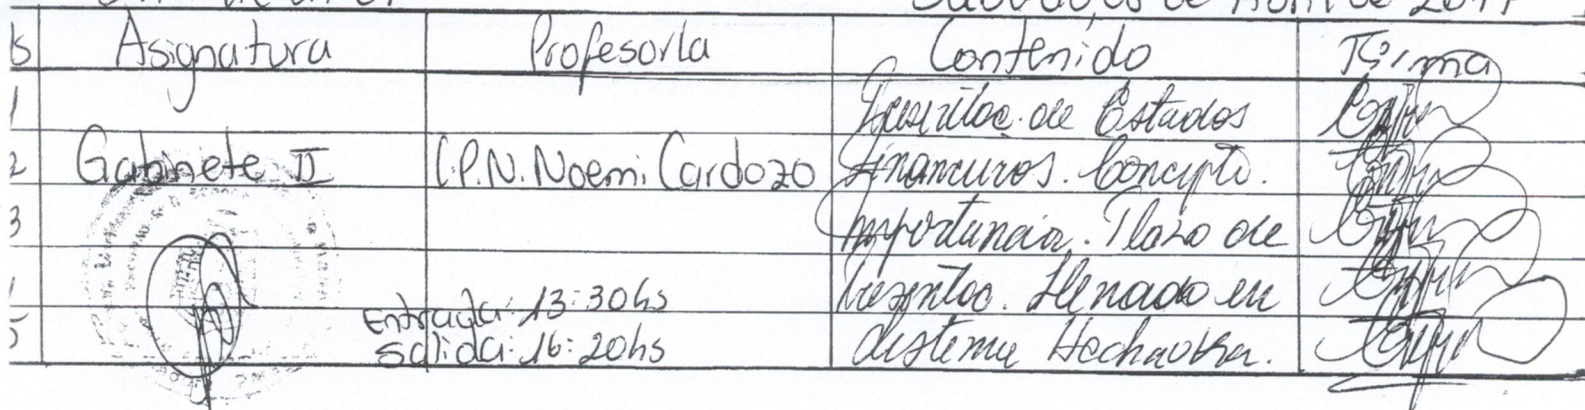 de Abril de 2017
Asignatura Profesor/a Contenido Firma
1 de Estados
2 Gabinete II C.P.N. Noemi Cardozo Financieros. Concepto.
3 Importancia. Plazo de
Entrada: 13:30hs Llenado en
5 Salida: 16:20hs Sistema Hechauka.